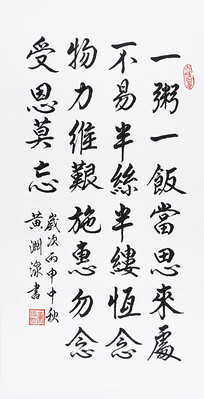 一粥一飯當思來處
不易半絲半縷恆念
物力維艱施惠勿念
受恩莫忘
歲次丙申中秋
黃淵泉書